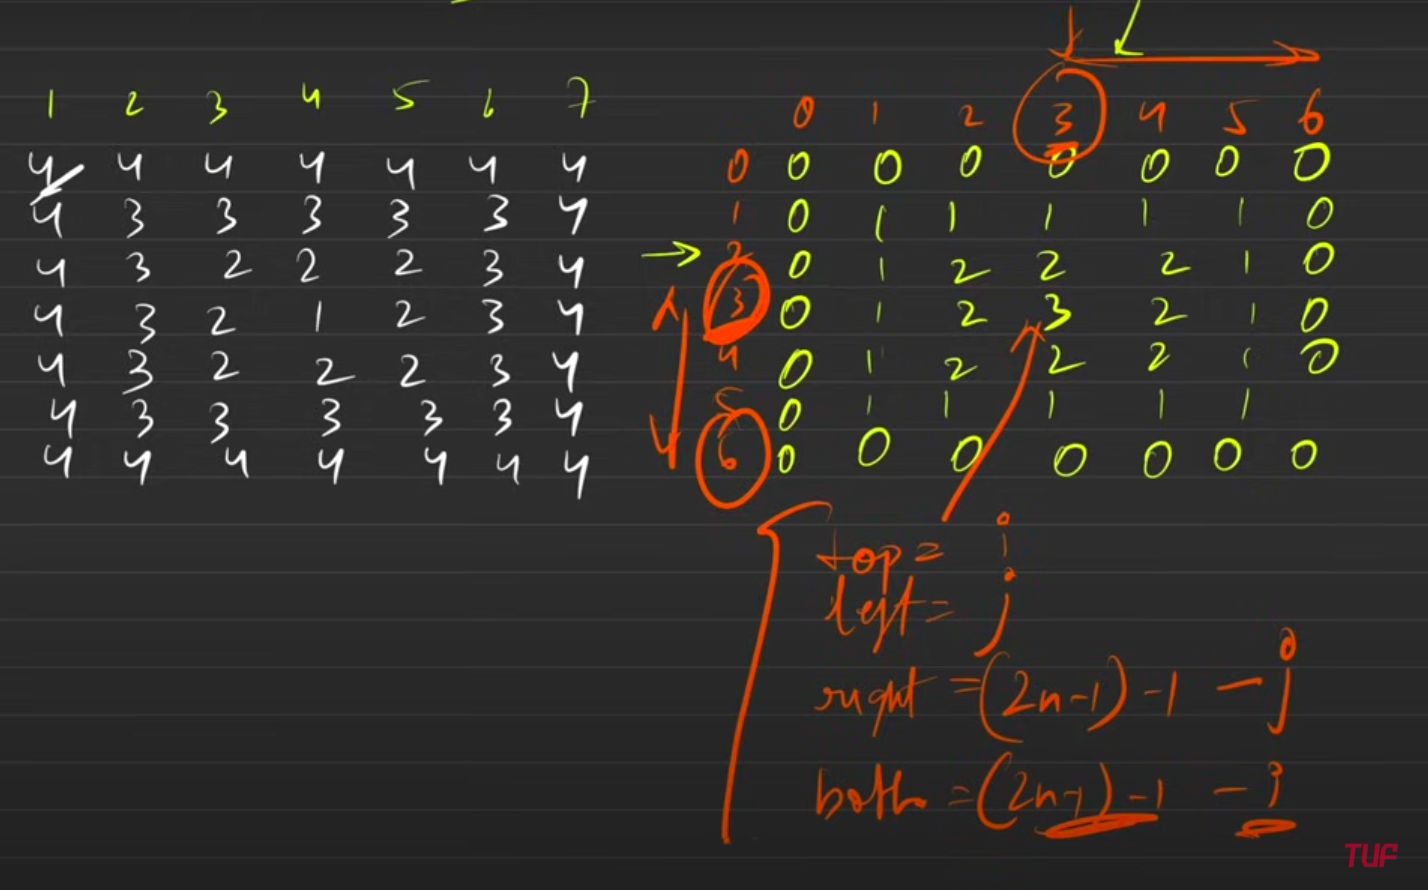 1 2 3 4 5 6 7
4 4 4 4 4 4 4
4 3 3 3 3 3 4
4 3 2 2 2 3 4
4 3 2 1 2 3 4
4 3 2 2 2 3 4
4 3 3 3 3 3 4
4 4 4 4 4 4 4
0 1 2 3 4 5 6
0 0 0 0 0 0 0 0
1 0 1 1 1 1 1 0
2 0 1 2 2 2 1 0
3 0 1 2 3 2 1 0
4 0 1 2 2 2 1 0
5 0 1 1 1 1 1
6 0 0 0 0 0 0 0
top = i
left = j
right = (2n-1)-1 - j
both = (2n-1)-1 - i
TUF